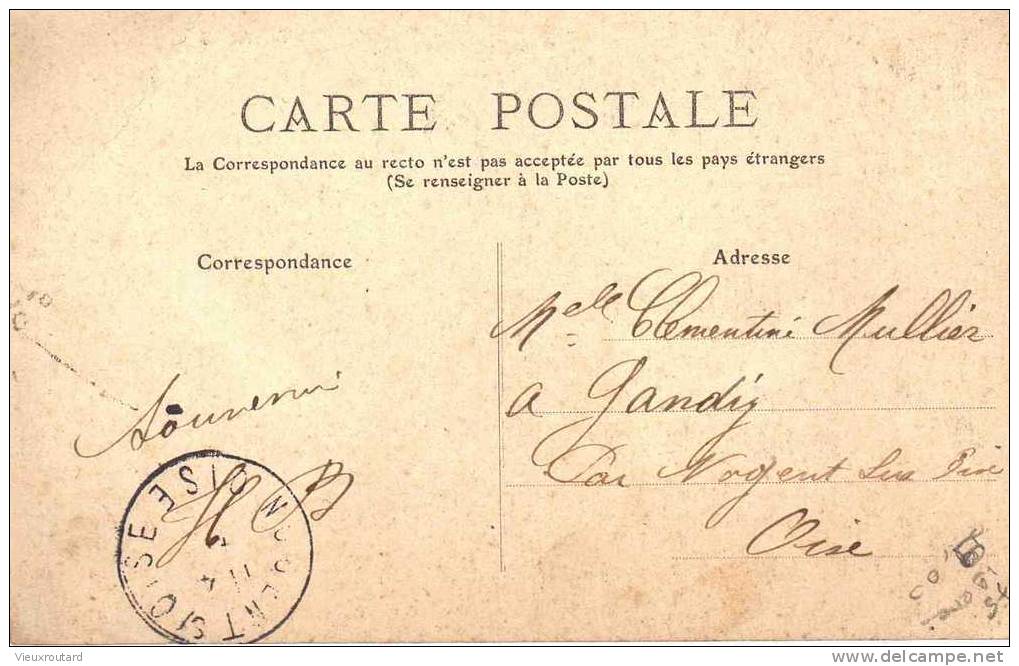 CARTE POSTALE
La Correspondance au recto n'est pas acceptée par tous les pays étrangers
(Se renseigner à la Poste)
Correspondance
Adresse
Melle Clementine Mullier
a Gandiy
Par Nogent sur Oise
Oise
Souvenir
H B
NOGENT S/ OISE OISE
Vieuxroutard
www.delcampe.net